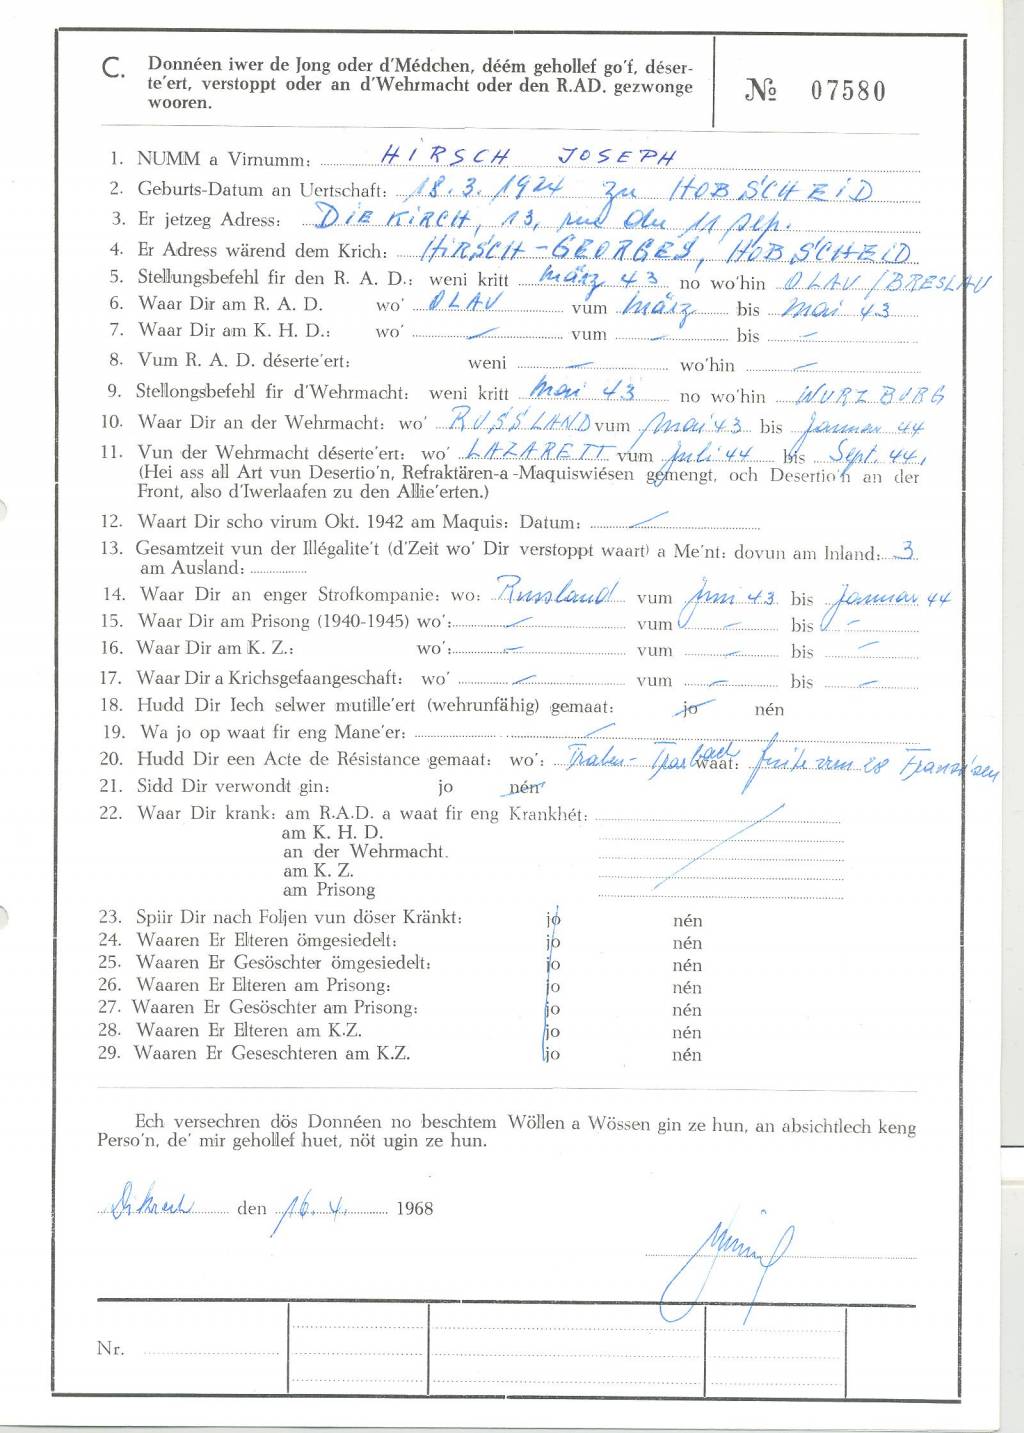 C. Donnéen iwer de Jong oder d'Médchen, déém gehollef go'f, déser-
te'ert, verstoppt oder an d'Wehrmacht oder den R.AD. gezwonge
wooren.
№ 07580
1. NUMM a Virnumm: HIRSCH JOSEPH
2. Geburts-Datum an Uertschaft: 18.3.1924 zu HOBSCHEID
3. Er jetzeg Adress: DIEKIRCH, 13, rue du 11 sep.
4. Er Adress wärend dem Krich: HIRSCH-GEORGES, HOBSCHEID
5. Stellungsbefehl fir den R. A. D.: weni kritt März 43 no wo'hin OLAV/BRESLAU
6. Waar Dir am R. A. D. wo' OLAV vum März bis Mai 43
7. Waar Dir am K. H. D.: wo' — vum — bis —
8. Vum R. A. D. déserte'ert: weni — wo'hin —
9. Stellongsbefehl fir d'Wehrmacht: weni kritt Mai 43 no wo'hin WURZBURG
10. Waar Dir an der Wehrmacht: wo' RUSSLAND vum Mai 43 bis Januar 44
11. Vun der Wehrmacht déserte'ert: wo' LAZARETT vum Juli 44 bis Sept. 44.
(Hei ass all Art vun Desertio'n, Refraktären-a-Maquiswiésen gemengt, och Desertio'n an der
Front, also d'Iwerlaafen zu den Allie'erten.)
12. Waart Dir scho virum Okt. 1942 am Maquis: Datum: —
13. Gesamtzeit vun der Illégalite't (d'Zeit wo' Dir verstoppt waart) a Me'nt: dovun am Inland: 3
am Ausland:
14. Waar Dir an enger Strofkompanie: wo: Russland vum Juni 43 bis Januar 44
15. Waar Dir am Prisong (1940-1945) wo': — vum — bis —
16. Waar Dir am K. Z.: wo': — vum — bis —
17. Waar Dir a Krichsgefaangeschaft: wo' — vum — bis —
18. Hudd Dir Iech selwer mutille'ert (wehrunfähig) gemaat: jo nén
19. Wa jo op waat fir eng Mane'er: —
20. Hudd Dir een Acte de Résistance gemaat: wo': Traben-Trarbach waat: 28
21. Sidd Dir verwondt gin: jo nén
22. Waar Dir krank: am R.A.D. a waat fir eng Krankhét:
am K. H. D.
an der Wehrmacht.
am K. Z.
am Prisong
23. Spiir Dir nach Foljen vun döser Kränkt: jo nén
24. Waaren Er Elteren ömgesiedelt: jo nén
25. Waaren Er Gesöschter ömgesiedelt: jo nén
26. Waaren Er Elteren am Prisong: jo nén
27. Waaren Er Gesöschter am Prisong: jo nén
28. Waaren Er Elteren am K.Z. jo nén
29. Waaren Er Geseschteren am K.Z. jo nén
Ech versechren dös Donnéen no beschtem Wöllen a Wössen gin ze hun, an absichtlech keng
Perso'n, de' mir gehollef huet, nöt ugin ze hun.
den 16. 4. 1968
Nr.